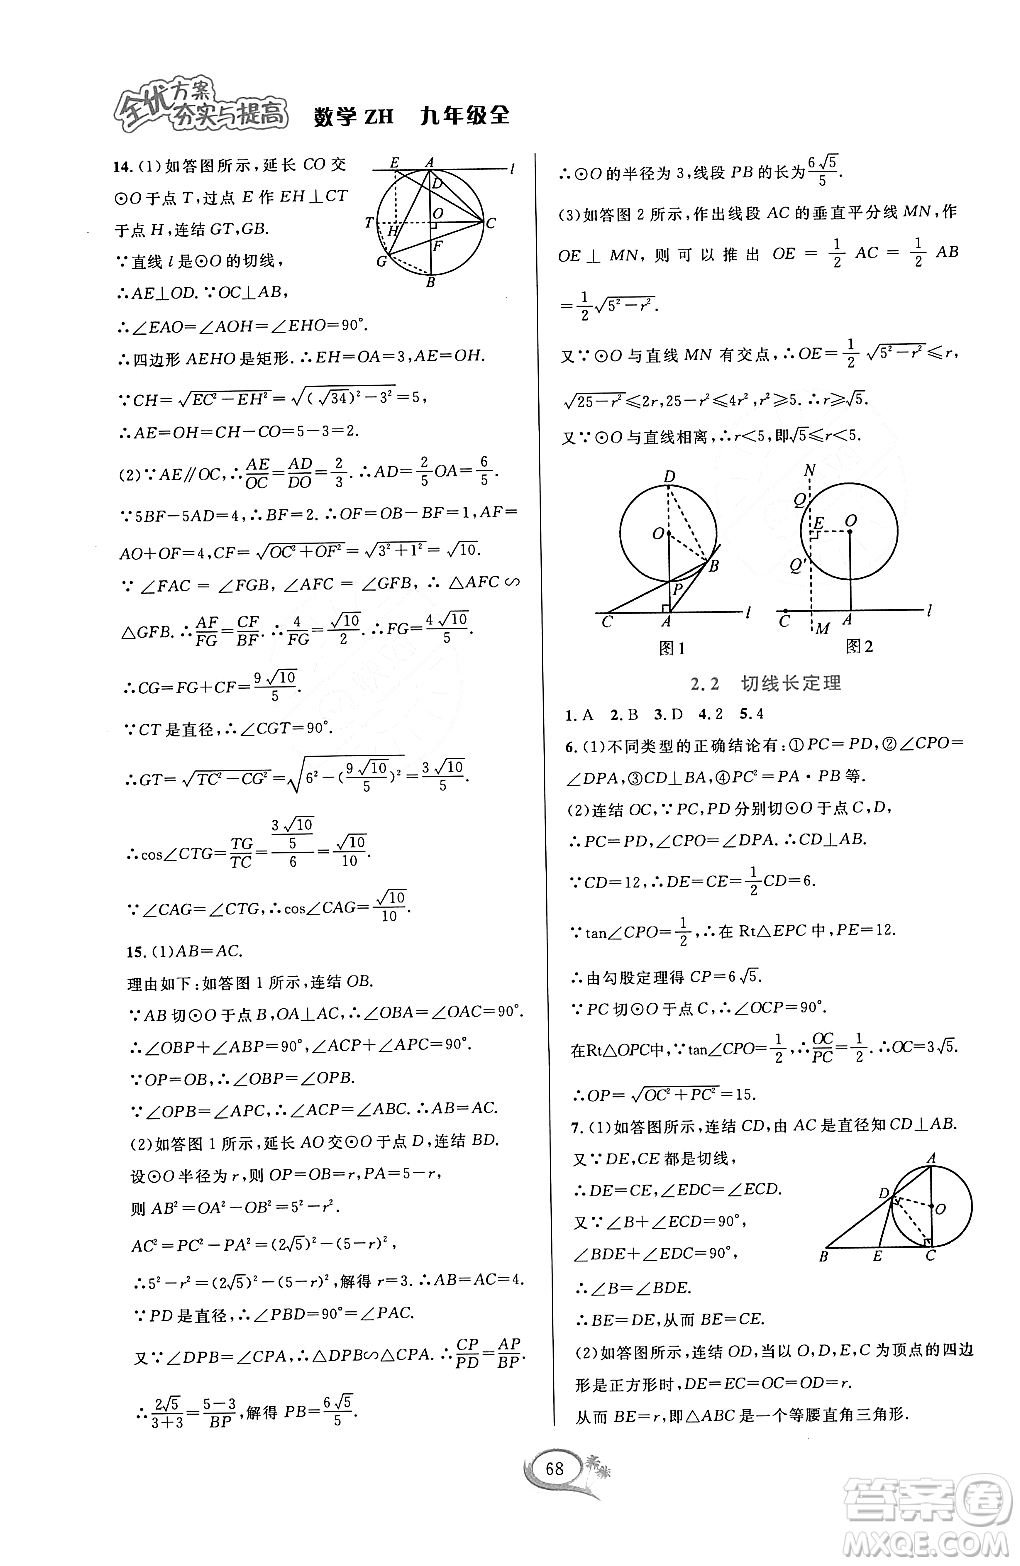 全优方案
夯实与提高 数学 ZH 九年级全
14. (1)如答图所示,延长 CO 交
⊙O 于点 T,过点 E 作 EH⊥CT
于点 H,连结 GT,GB.
∵直线 l 是⊙O 的切线,
∴AE⊥OD.∵OC⊥AB,
∴∠EAO=∠AOH=∠EHO=90°.
∴四边形 AEHO 是矩形.∴EH=OA=3,AE=OH.
∵CH=√(EC²-EH²)=√((√34)²-3²)=5,
∴AE=OH=CH-CO=5-3=2.
(2)∵AE∥OC,∴AE/OC=AD/DO=2/3.∴AD=2/5OA=6/5.
∵5BF-5AD=4,∴BF=2.∴OF=OB-BF=1,AF=
AO+OF=4,CF=√(OC²+OF²)=√(3²+1²)=√10.
∵∠FAC=∠FGB,∠AFC=∠GFB,∴△AFC∽
△GFB.∴AF/FG=CF/BF.∴4/FG=√10/2.∴FG=4√10/5.
∴CG=FG+CF=9√10/5.
∵CT 是直径,∴∠CGT=90°.
∴GT=√(TC²-CG²)=√(6²-(9√10/5)²)=3√10/5.
∴cos∠CTG=TG/TC=(3√10/5)/6=√10/10.
∵∠CAG=∠CTG,∴cos∠CAG=√10/10.
15. (1)AB=AC.
理由如下:如答图 1 所示,连结 OB.
∵AB 切⊙O 于点 B,OA⊥AC,∴∠OBA=∠OAC=90°.
∴∠OBP+∠ABP=90°,∠ACP+∠APC=90°.
∵OP=OB,∴∠OBP=∠OPB.
∵∠OPB=∠APC,∴∠ACP=∠ABP.∴AB=AC.
(2)如答图 1 所示,延长 AO 交⊙O 于点 D,连结 BD.
设⊙O 半径为 r,则 OP=OB=r,PA=5-r,
则 AB²=OA²-OB²=5²-r².
AC²=PC²-PA²=(2√5)²-(5-r)²,
∴5²-r²=(2√5)²-(5-r)²,解得 r=3.∴AB=AC=4.
∵PD 是直径,∴∠PBD=90°=∠PAC.
又∵∠DPB=∠CPA,∴△DPB∽△CPA.∴CP/PD=AP/BP.
∴2√5/(3+3)=(5-3)/BP,解得 PB=6√5/5.
E A l
D
T H O C
F
G
B
∴⊙O 的半径为 3,线段 PB 的长为6√5/5.
(3)如答图 2 所示,作出线段 AC 的垂直平分线 MN,作
OE⊥MN,则可以推出 OE=1/2AC=1/2AB
=1/2√(5²-r²).
又∵⊙O 与直线 MN 有交点,∴OE=1/2√(5²-r²)≤r,
√(25-r²)≤2r,25-r²≤4r²,r²≥5.∴r≥√5.
又∵⊙O 与直线相离,∴r<5,即√5≤r<5.
D
O
B
P
C A l
图1
N
Q
E O
Q′
C A l
M
图2
2.2 切线长定理
1. A 2. B 3. D 4. 2 5. 4
6. (1)不同类型的正确结论有:①PC=PD,②∠CPO=
∠DPA,③CD⊥BA,④PC²=PA·PB等.
(2)连结 OC,∵PC,PD 分别切⊙O 于点 C,D,
∴PC=PD,∠CPO=∠DPA.∴CD⊥AB.
∵CD=12,∴DE=CE=1/2CD=6.
∵tan∠CPO=1/2,∴在 Rt△EPC 中,PE=12.
∴由勾股定理得 CP=6√5.
∵PC 切⊙O 于点 C,∴∠OCP=90°.
在Rt△OPC中,∵tan∠CPO=1/2,∴OC/PC=1/2.∴OC=3√5.
∴OP=√(OC²+PC²)=15.
7. (1)如答图所示,连结 CD,由 AC 是直径知 CD⊥AB.
又∵DE,CE 都是切线,
∴DE=CE,∠EDC=∠ECD.
又∵∠B+∠ECD=90°,
∠BDE+∠EDC=90°,
∴∠B=∠BDE.
∴BE=DE.从而 BE=CE.
(2)如答图所示,连结 OD,当以 O,D,E,C 为顶点的四边
形是正方形时,DE=EC=CO=OD=r.
从而 BE=r,即△ABC 是一个等腰直角三角形.
A
D
O
B E C
68
答案圈
MXQE.COM